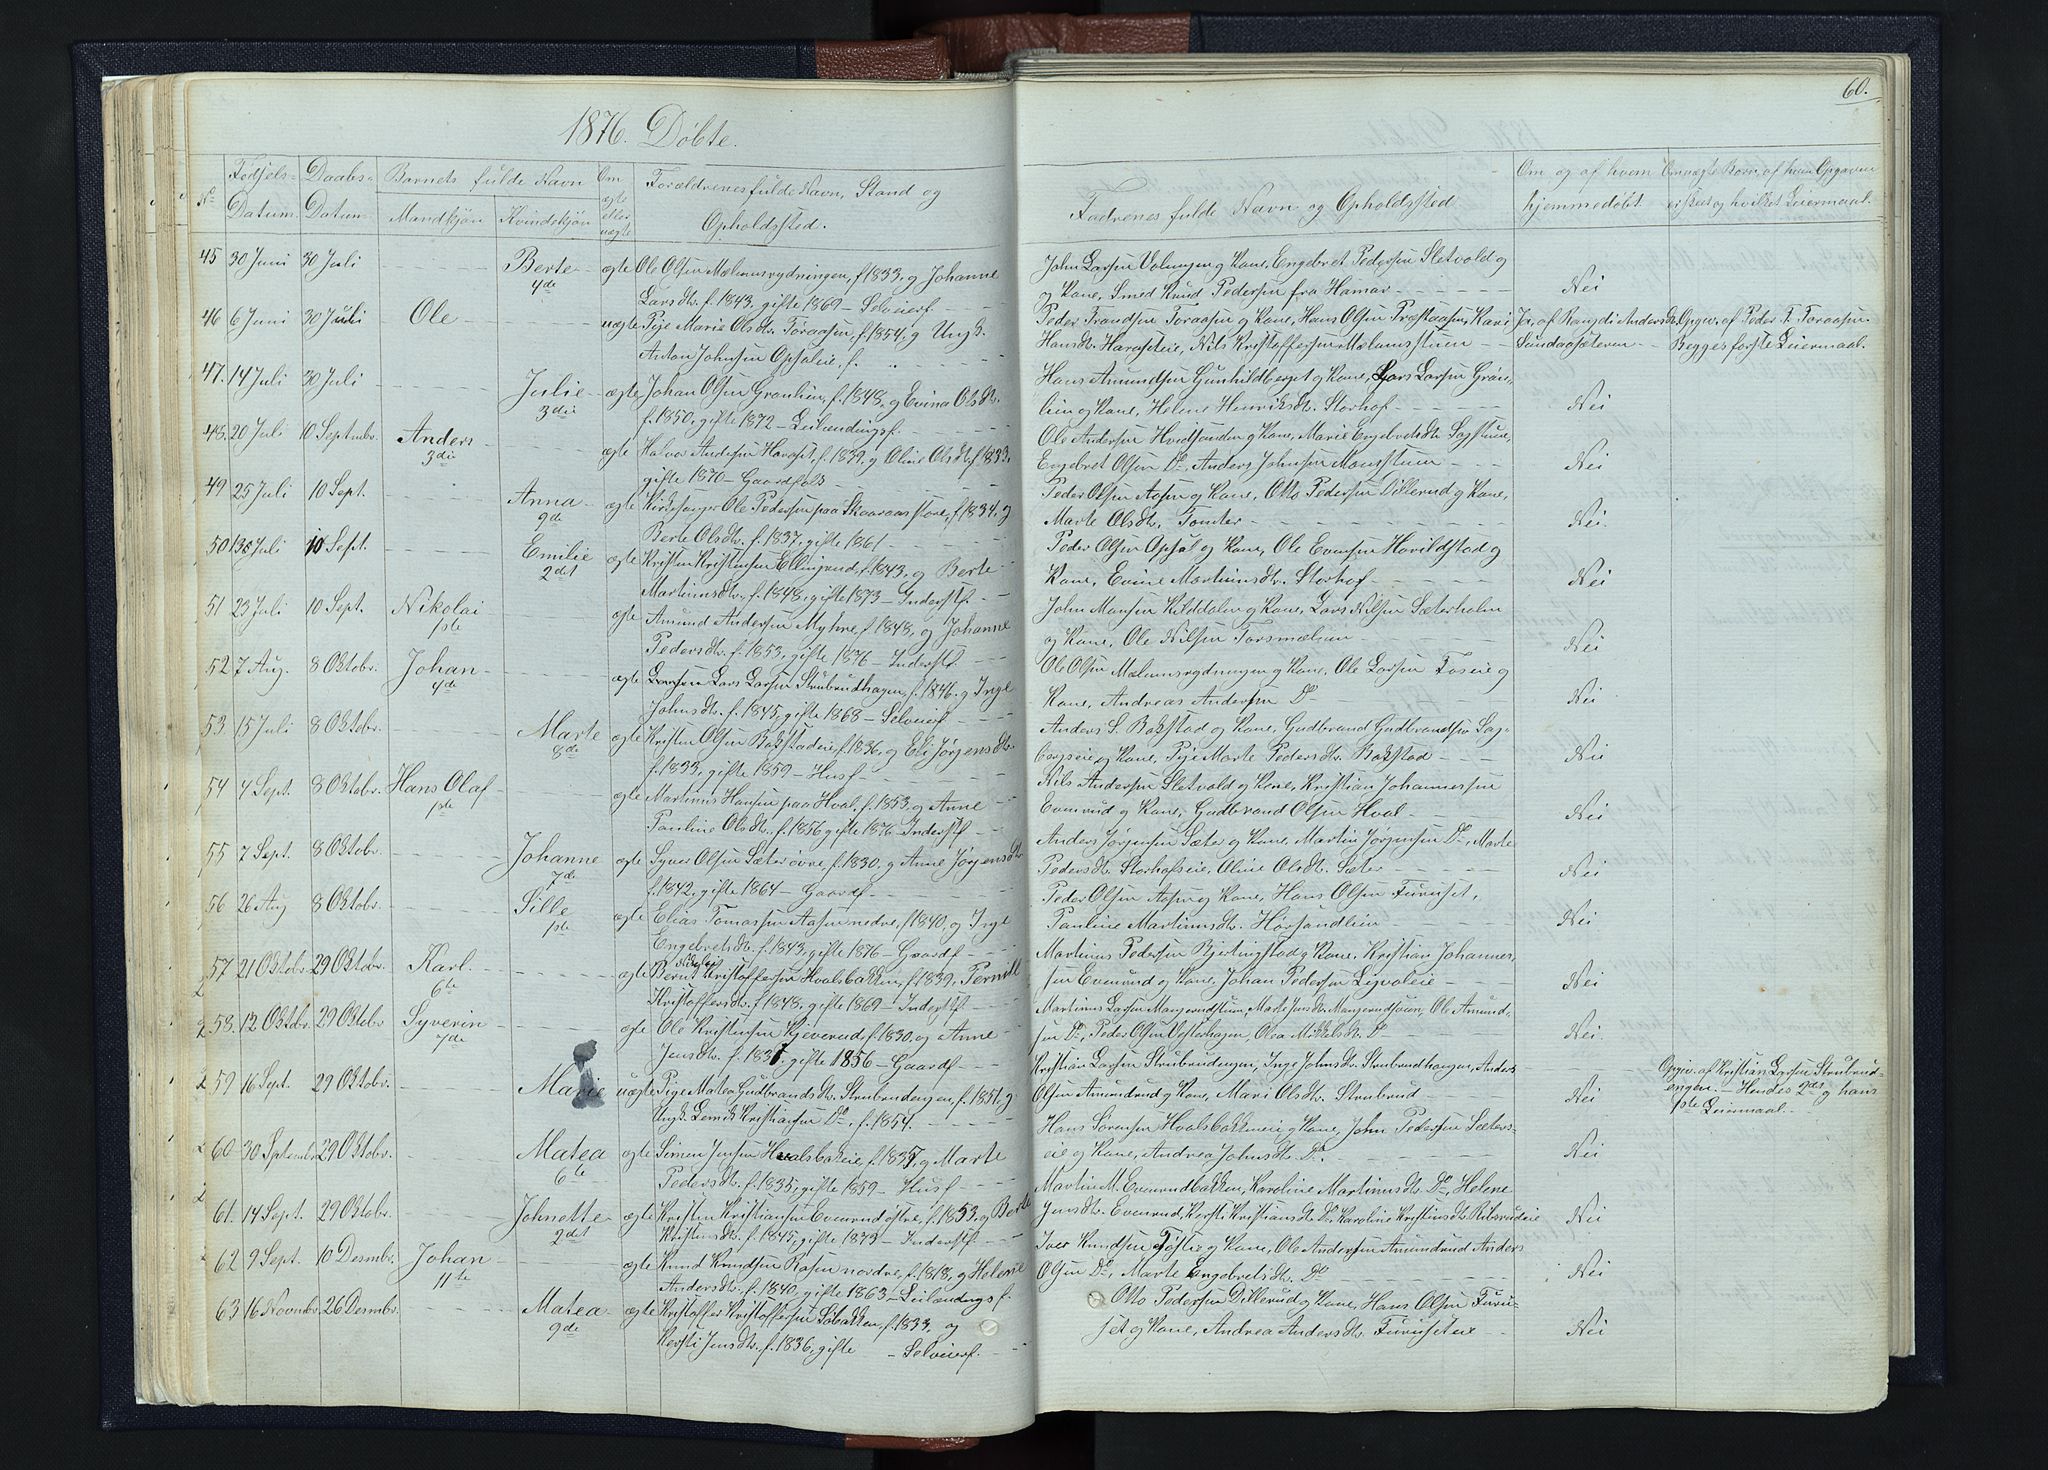 60.
1876. Döbte.
No
Födsels-
Datum.
Daabs-
Datum
Barnets fulde Navn
Mandkjön
Kvindekjön
Om
ægte
eller
uægte
Forældrenes fulde Navn, Stand og
Opholdssted.
Fadrenes fulde Navn og Opholdssted
Om og af hvem
hjemmedöbt.
Om uægte Barn, af hvem Opgaven
er skeet og hvilket Leiermaal.
45 30 Juni 30 Juli Berte 4de ægte Ole Olsen Mælumsrydningen, f. 1833, og Johanne
Larsdtr. f. 1843, gifte 1869 - Selveierf.
John Larsen Volungen og Kone, Engebret Pedersen Sletvold og
og Kone, Smed Knud Pedersen fra Hamar Nei
46 6 Juni 30 Juli Ole uægte Pige Marie Olsdtr. Toraasen, f. 1854, og Ungk.
Anton Johnsen Opsaleie, f.
Peder Frandsen Toraasen og Kone, Hans Olsen Præstaasen, Kari
Hansdtr. Haraseteie, Nils Kristoffersen Mælumsstuen
Ja, af Rangdi Andersdtr.
Sandaasæteren
Opgiv. af Peder F. Toraasen
Begges förste Leiermaal.
47. 14 Juli 30 Juli Julie 3die ægte Johan Olsen Granlien, f. 1848, og Evina Olsdtr.
f. 1850, gifte 1872 - Leilændingsf.
Hans Amundsen Gunhildberget og Kone, Lars Larsen Grön-
lien og Kone, Helene Henriksdtr. Storhof Nei
48. 20 Juli 10 Septmbr. Anders 3die ægte Halvor Andersen Haraset, f. 1839, og Oline Olsdtr. f. 1833,
gifte 1870 - Gaardfolk
Ole Andersen Hordsanden og Kone, Marie Engebretsdtr. Sagstuen,
Engebret Olsen Do, Anders Johnsen Monsstuen Nei
49 25 Juli 10 Sept. Anna 9de ægte Kirkesanger Ole Pedersen paa Skaaraas store, f. 1834, og
Berte Olsdtr. f. 1837, gifte 1861
Peder Olsen Aasen og Kone, Otto Pedersen Dillerud og Kone,
Marte Olsdtr. Tomter Nei.
50 13 Juli 10 Sept. Emilie 2det ægte Kristen Kristensen Ellingsrud, f. 1843, og Berte
Martinusdtr. f. 1848, gifte 1873 - Inderstf.
Peder Olsen Opsal og Kone, Ole Evensen Hovildstad og
Kone, Evine Martinusdtr. Storhof Nei
51 23 Juli 10 Sept. Nikolai 1ste ægte Amund Andersen Myhre, f. 1848, og Johanne
Pedersdtr. f. 1853, gifte 1876 - Inderstf.
John Monsen Kilddalen og Kone, Lars Nilsen Sæterholm
og Kone, Ole Nilsen Torsmælien Nei
52 7 Aug. 8 Oktobr. Johan 4de ægte Lars Larsen Strubrudhagen, f. 1846, og Inge
Johnsdtr. f. 1845, gifte 1868 - Selveierf.
Ole Olsen Mælumsrydningen og Kone, Ole Larsen Foseie og
Kone, Andreas Andersen Do Nei
53. 15 Juli 8 Oktobr. Marte 8de ægte Kristen Olsen Bakstadeie, f. 1836, og Eli Jörgensdtr.
f. 1833, gifte 1859 - Husf.
Anders S. Bakstad og Kone, Gudbrand Gudbrandsen Sag-
bergseie og Kone, Pige Marte Pedersdtr. Bakstad Nei
54 4 Sept. 8 Oktobr. Hans Olaf 1ste ægte Martinus Hansen paa Hval, f. 1853, og Anne
Pauline Olsdtr. f. 1856, gifte 1876 - Inderstf.
Nils Andersen Sletvold og Kone, Kristian Johannessen
Evenrud og Kone, Gudbrand Olsen Hval Nei
55 7 Sept. 8 Oktobr. Johanne 7de ægte Syver Olsen Sæter övre, f. 1830, og Anne Jörgensdtr.
f. 1842, gifte 1864 - Gaardf.
Anders Jörgensen Sæter og Kone, Martin Jörgensen Do, Marte
Pedersdtr. Storhofseie, Oline Olsdtr. Sæter Nei
56 26 Aug 8 Oktobr. Sille 1ste ægte Elias Tomassen Aasen nedre, f. 1840, og Inge
Engebretsdtr. f. 1843, gifte 1876 - Gaardf
Peder Olsen Aasen og Kone, Hans Olsen Furuset,
Pauline Martinusdtr. Hörsandlien Nei
57 21 Oktobr. 29 Oktobr. Karl 6te ægte Bernt Nikolai Kristoffersen Hvalsbakken, f. 1839, Pernille
Kristoffersdtr. f. 1848, gifte 1869 - Inderstf.
Martinus Pedersen Bjertingstad og Kone, Kristian Johannes-
sen Evenrud og Kone, Johan Pedersen Ligvoleie Nei
58. 12 Oktobr. 29 Oktobr Syverin 7de ægte Ole Kristensen Kjeverud, f. 1830, og Anne
Jensdtr. f. 1831, gifte 1856 - Gaardf
Martinus Larsen Mangerudstuen, Marte Jensdtr. Mangerudsveen, Ole Amund-
sen Do, Peder Olsen Vesterhagen, Olea Mikkelsdtr. Do Nei.
59 16 Sept. 29 Oktobr. Marie uægte Pige Matea Gudbrandsdtr. Strubrudengen, f. 1851, og
Ungk. Lemik Kristiansen Do, f. 1854.
Kristian Larsen Strubrudengen, Inge Johnsdtr. Strubrudhagen, Anders
Olsen Amundrud og Kone, Mari Olsdtr. Strubrud Nei
Opgiv. af Kristian Larsen Strubrud-
engen. Hendes 2det og hans
1ste Leiermaal.
60 30 Septembr 29 Oktobr. Matea 6te ægte Simen Jensen Hvalsbakeie, f. 1837, og Marte
Pedersdtr. f. 1835, gifte 1859 - Husf
Hans Sörensen Hvalsbakkeneie og Kone, John Pedersen Sæters-
eie og Kone, Andrea Johnsdtr. Do Nei
61. 14 Sept. 29 Oktobr. Johnette 2det ægte Kristen Kristiansen Evenrud östre, f. 1853, og Berte
Kristensdtr. f. 1845, gifte 1873 - Inderstf.
Martin M. Evenrudbakken, Karoline Martinusdtr. Do, Helene
Jensdtr. Evenrud, Kersti Kristiansdtr. Do, Karoline Kristensdtr. Ribsrudeie Nei
62 9 Sept. 10 Desmbr. Johan 11te ægte Knud Knudsen Rosen nordre, f. 1818, og Helene
Andersdtr. f. 1840, gifte 1863 - Leilændingsf.
Iver Knudsen Töfte og Kone, Ole Andersen Amundrud, Anders
Olsen Do, Marte Engebretsdtr. Do Nei
63 16 Novmbr. 26 Desmbr. Matea 9de ægte Kristoffer Kristoffersen Sobakken, f. 1833, og
Kersti Jensdtr. f. 1836, gifte - Selveierf.
Otto Pedersen Dillerud og Kone, Hans Olsen Furu-
set og Kone, Andrea Andersdtr. Furuseteie Nei